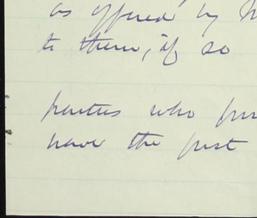 as offered by
to them, if so
parties who
have the first